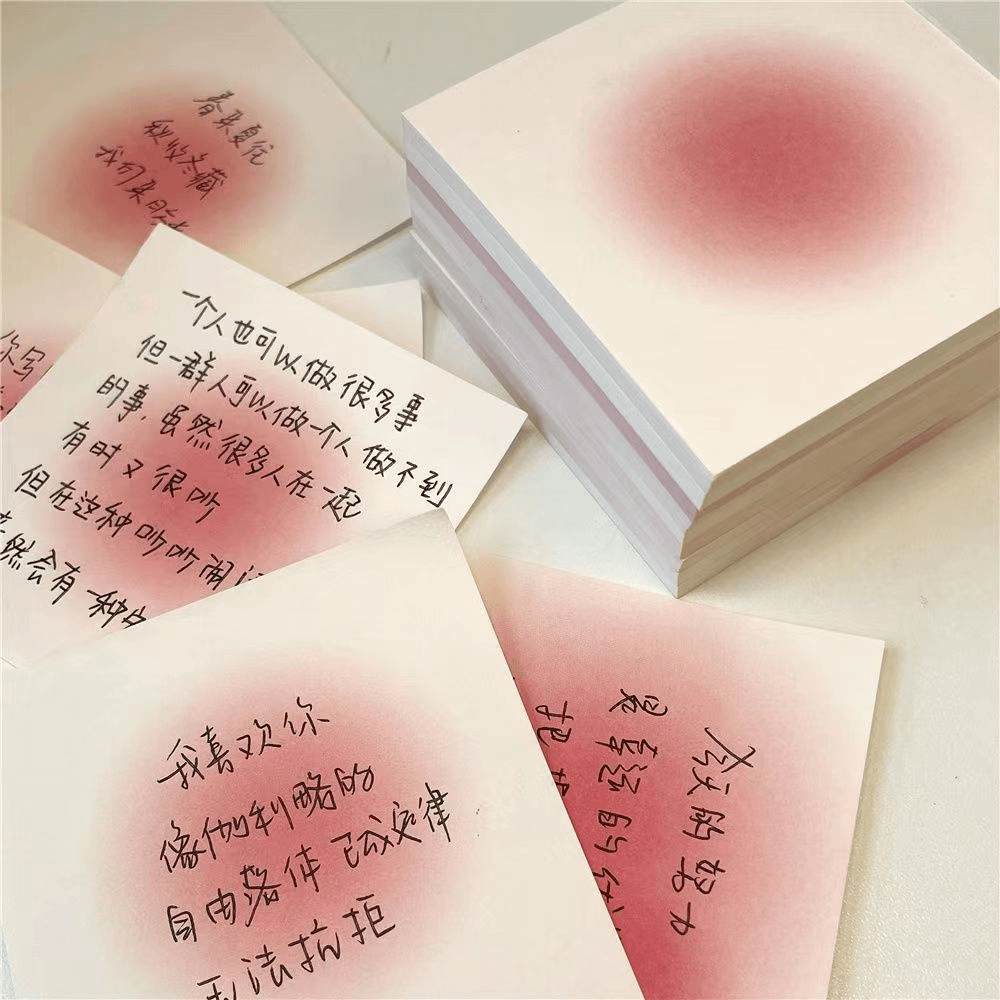 春来夏往
秋收冬藏
我们来日
你写
一个人也可以做很多事
但一群人可以做一个人做不到
的事 虽然很多人在一起
有时又很吵
但在这种吵吵闹
然会有一种
我喜欢你
像伽利略的
自由落体 已成定律
无法抗拒
的努力
是幸运的
把